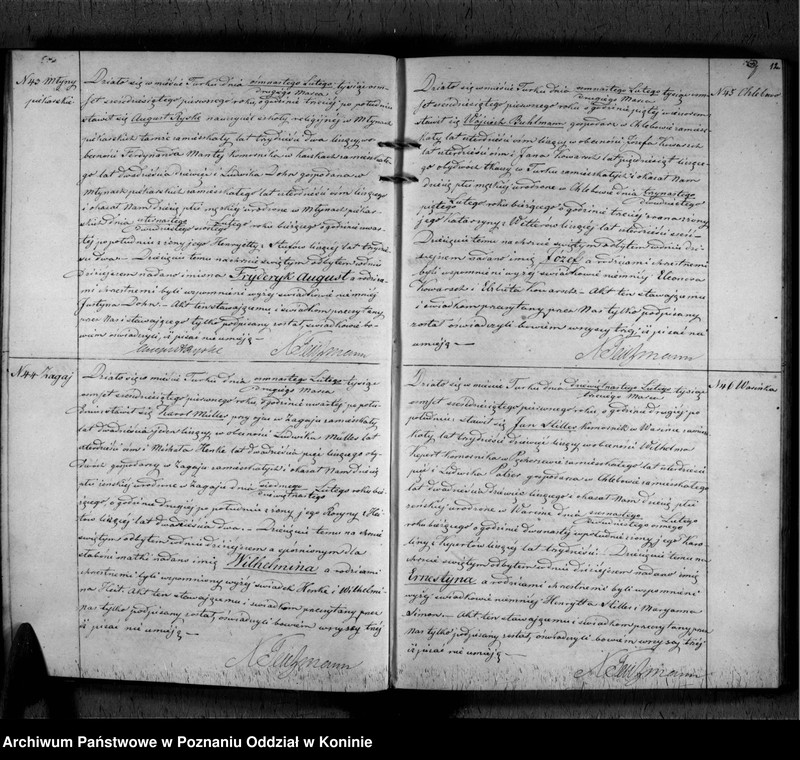 N43 Młyny
piekarskie
Działo się w mieście Turku dnia ośmnastego Lutego tysiąc ośm-
drugiego Marca
set sześćdziesiątego pierwszego roku o godzinie trzeciej po południu
stawił się August Ryske nauczyciel szkoły religijnej w Młynach
piekarskich tamże zamieszkały lat trzydzieści dwa liczący w o-
becności Ferdynanda Mantej komornika w zamieszkałe-
go lat dwadzieścia dziewięć i Ludwika Dohn gospodarza w
Młynach piekarskich zamieszkałego lat czterdzieści ośm liczącego
i okazał Nam dziecię płci męzkiej urodzone w Młynach piekar-
skich dnia Lutego roku bieżącego o godzinie czwar-
tej po południu z żony jego Henryetty z lat trzydzie-
ści dwa — Dziecięciu temu na chrzcie świętym odbytym w dniu
dzisiejszem nadano imiona Fryderyk August a rodzica-
mi chrzestnemi byli wspomnieni wyżej świadkowie niemniéj
Justyna Dohn. — Akt ten stawającemu i świadkom przeczytany,
przez Nas i stawającego tylko podpisany został, świadkowie bo-
wiem oświadczyli, iż pisać nie umieją —
N44 Zagaj
Działo się w mieście Turku dnia ośmnastego Lutego tysiąc
drugiego Marca
ośmset sześćdziesiątego pierwszego roku o godzinie czwartej po połu-
dniu stawił się Karol Müller przy ojcu w Zagaju zamieszkały
lat dwadzieścia jeden liczący w obecności Ludwika Müller lat
czterdzieści ośm i Michała Henke lat dwadzieścia pięć liczącego oby-
dwóch gospodarzy w Zagaju zamieszkałych i okazał Nam dziecię
płci żeńskiej urodzone w Zagaju dnia siódmego Lutego roku bie-
dziewiętnastego
żącego o godzinie drugiej po południu z żony jego Rozyny z
lat dwadzieścia dwa. — Dziecięciu temu na chrzcie
świętym odbytym w dniu dzisiejszem a opóźnionym dla
słabości matki nadano imię Wilhelmina a rodzicami
chrzestnemi byli wspomniony wyżej świadek Henke i Wilhelmi-
na Akt ten stawającemu i świadkom przeczytany przez
Nas tylko podpisany został, oświadczyli bowiem wszyscy trzéj
iż pisać nie umieją —
12
N45 Chlebów
Działo się w mieście Turku dnia ośmnastego Lutego tysiąc ośm-
drugiego Marca
set sześćdziesiątego pierwszego roku o godzinie piątej wieczorem
stawił się Wojciech Buhlmann gospodarz w Chlebowie zamiesz-
kały lat czterdzieści ośm liczący w obecności Józefa Kowarsch
lat czterdzieści ośm i Jana Kowarsch lat pięćdziesiąt liczące-
go obydwóch tkaczy w Turku zamieszkałych i okazał Nam
dziecię płci męzkiej urodzone w Chlebowie dnia trzynastego
dwudziestego
piątego Lutego roku bieżącego o godzinie trzeciej z rana z żony
jego Katarzyny z Witterów liczącej lat czterdzieści —
Dziecięciu temu na chrzcie świętym odbytym w dniu dzi-
siejszem nadano imię Józef a rodzicami chrzestnemi
byli wspomnieni wyżej świadkowie niemniéj Eleonora
Kowarsch i Elżbieta Akt ten stawającemu
i świadkom przeczytany przez Nas tylko podpisany
został oświadczyli bowiem wszyscy trzéj, iż pisać nie
umieją —
N46 Warinka
Działo się w mieście Turku dnia dziewiętnastego Lutego tysiąc
trzeciego Marca
ośmset sześćdziesiątego pierwszego roku o godzinie drugiej po
południu stawił się Jan Stiller komornik w zamiesz-
kały lat trzydzieści dziewięć liczący w obecności Wilhelma
Hepert komornika w zamieszkałego lat czterdzieści
pięć i Ludwika gospodarza w Chlebowie zamieszkałego
lat dwadzieścia dziewięć liczącego i okazał Nam dziecię płci
żeńskiej urodzone w dnia Lutego
roku bieżącego o godzinie dwunastej w południe z żony jego Karo-
liny z Hepertów liczącej lat trzydzieści. — Dziecięciu temu na
chrzcie świętym odbytym w dniu dzisiejszem nadano imię
Ernestyna a rodzicami chrzestnemi byli wspomnieni
wyżej świadkowie niemniéj Henryetta Stiller i Maryanna
Simon. — Akt ten stawającemu i świadkom przeczytany przez
Nas tylko podpisany został, oświadczyli bowiem wszyscy trzéj
iż pisać nie umieją —
Archiwum Państwowe w Poznaniu Oddział w Koninie